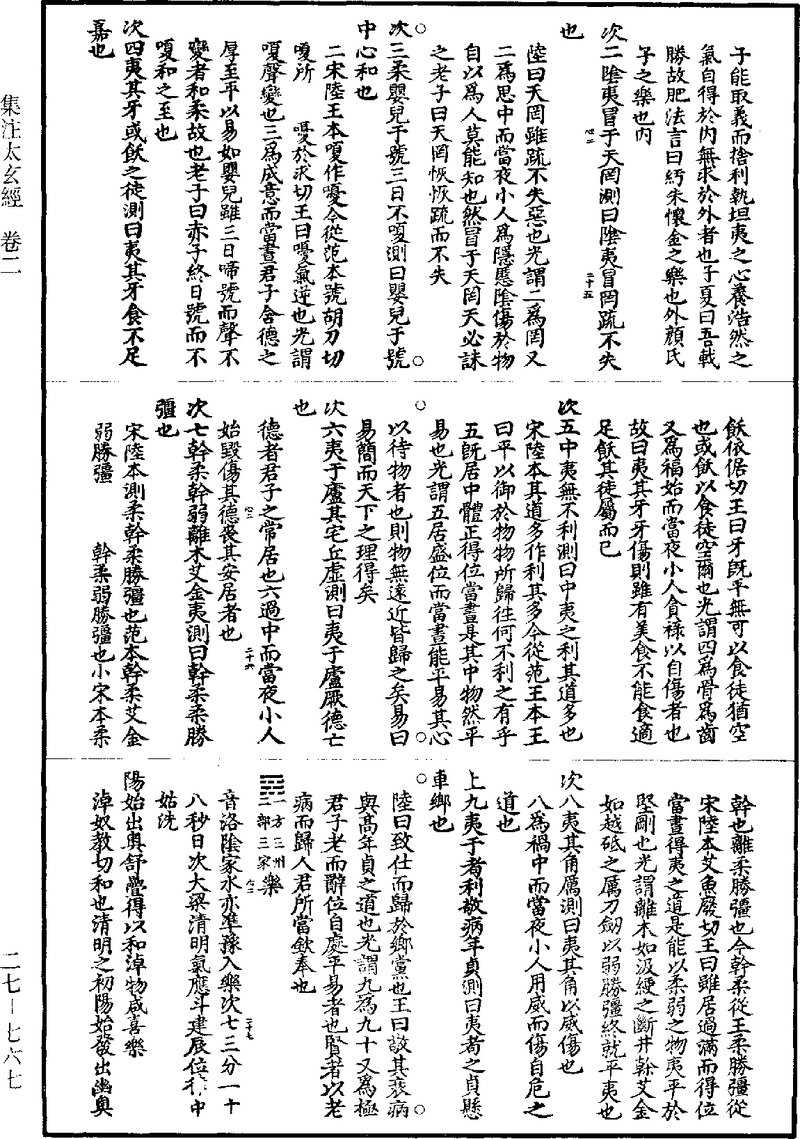 集注太玄經　卷二
子能取義而捨利執坦夷之心養浩然之
氣自得於內無求於外者也子夏曰吾戰
勝故肥法言曰紆朱懷金之樂也外顏氏
子之樂也內
次二陰夷冒于天罔測曰陰夷冒罔疏不失
也
陸曰天罔雖疏不失惡也光謂二為罔又
二為思中而當夜小人為隱慝陰傷於物
自以為人莫能知也然冒于天罔天必誅
之老子曰天罔恢恢疏而不失
次三柔嬰兒于號三日不嗄測曰嬰兒于號
中心和也
二宋陸王本嗄作嚘今從范本號胡刀切
嗄所　嚘於求切王曰嚘氣逆也光謂
嗄聲變也三為成意而當晝君子含德之
厚至平以易如嬰兒雖三日啼號而聲不
變者和柔故也老子曰赤子終日號而不
嗄和之至也
次四夷其牙或飫之徒測曰夷其牙食不足
嘉也
飫依倨切王曰牙旣平無可以食徒猶空
也或飫以食徒空爾也光謂四為骨為齒
又為福始而當夜小人貪祿以自傷者也
故曰夷其牙牙傷則雖有美食不能食適
足飫其徒屬而已
次五中夷無不利測曰中夷之利其道多也
宋陸本其道多作利其多今從范王本王
曰平以御於物物所歸往何不利之有乎
五旣居中體正得位當晝是其中物然平
易也光謂五居盛位而當晝能平易其心
以待物者也則物無遠近皆歸之矣易曰
易簡而天下之理得矣
次六夷于廬其宅丘虛測曰夷于廬厥德亡
也
德者君子之常居也六過中而當夜小人
始毀傷其德喪其安居者也
次七幹柔幹弱離木艾金夷測曰幹柔柔勝
彊也
宋陸本測柔幹柔勝彊也范本幹柔艾金
弱勝彊　幹柔弱勝彊也小宋本柔
幹也離柔勝彊也今幹柔從王柔勝彊從
宋陸本艾魚廢切王曰雖居過滿而得位
當晝得夷之道是能以柔弱之物夷平於
堅剛也光謂離木如汲綆之斷井幹艾金
如越砥之厲刀劒以弱勝彊終就平夷也
次八夷其角厲測曰夷其角以威傷也
八為禍中而當夜小人用威而傷自危之
道也
上九夷于耆利敬病年貞測曰夷耆之貞懸
車鄉也
陸曰致仕而歸於鄉黨也王曰敬其衰病
與高年貞之道也光謂九為九十又為極
君子老而辭位自處平易者也賢者以老
病而歸人君所當欽奉也
一方二州三部三家　樂
音洛陰家水亦準豫入樂次七三分一十
八秒日次大梁清明氣應斗建辰位律中
姑洗
陽始出奧舒疊得以和淖物咸喜樂
淖奴教切和也清明之初陽始發出幽奧
二七—七六七